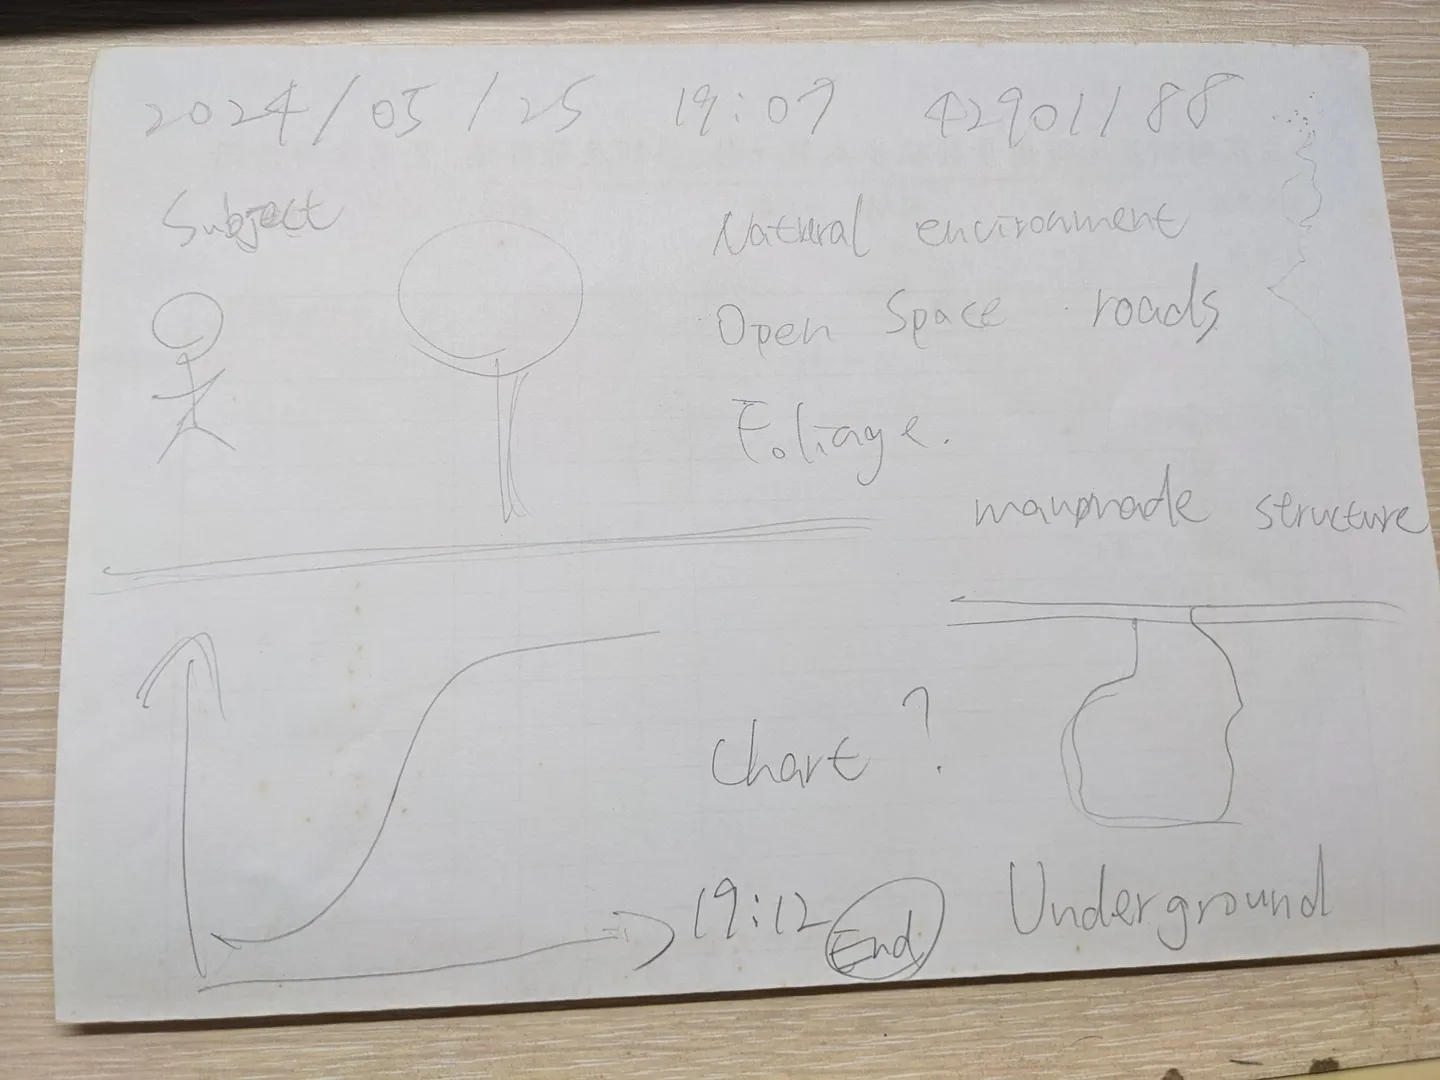 2024/05/25 19:07 42901188
Subject
Natural environment
Open space roads
Foliage.
manmade structure
Chart ?
19:12 End
Underground